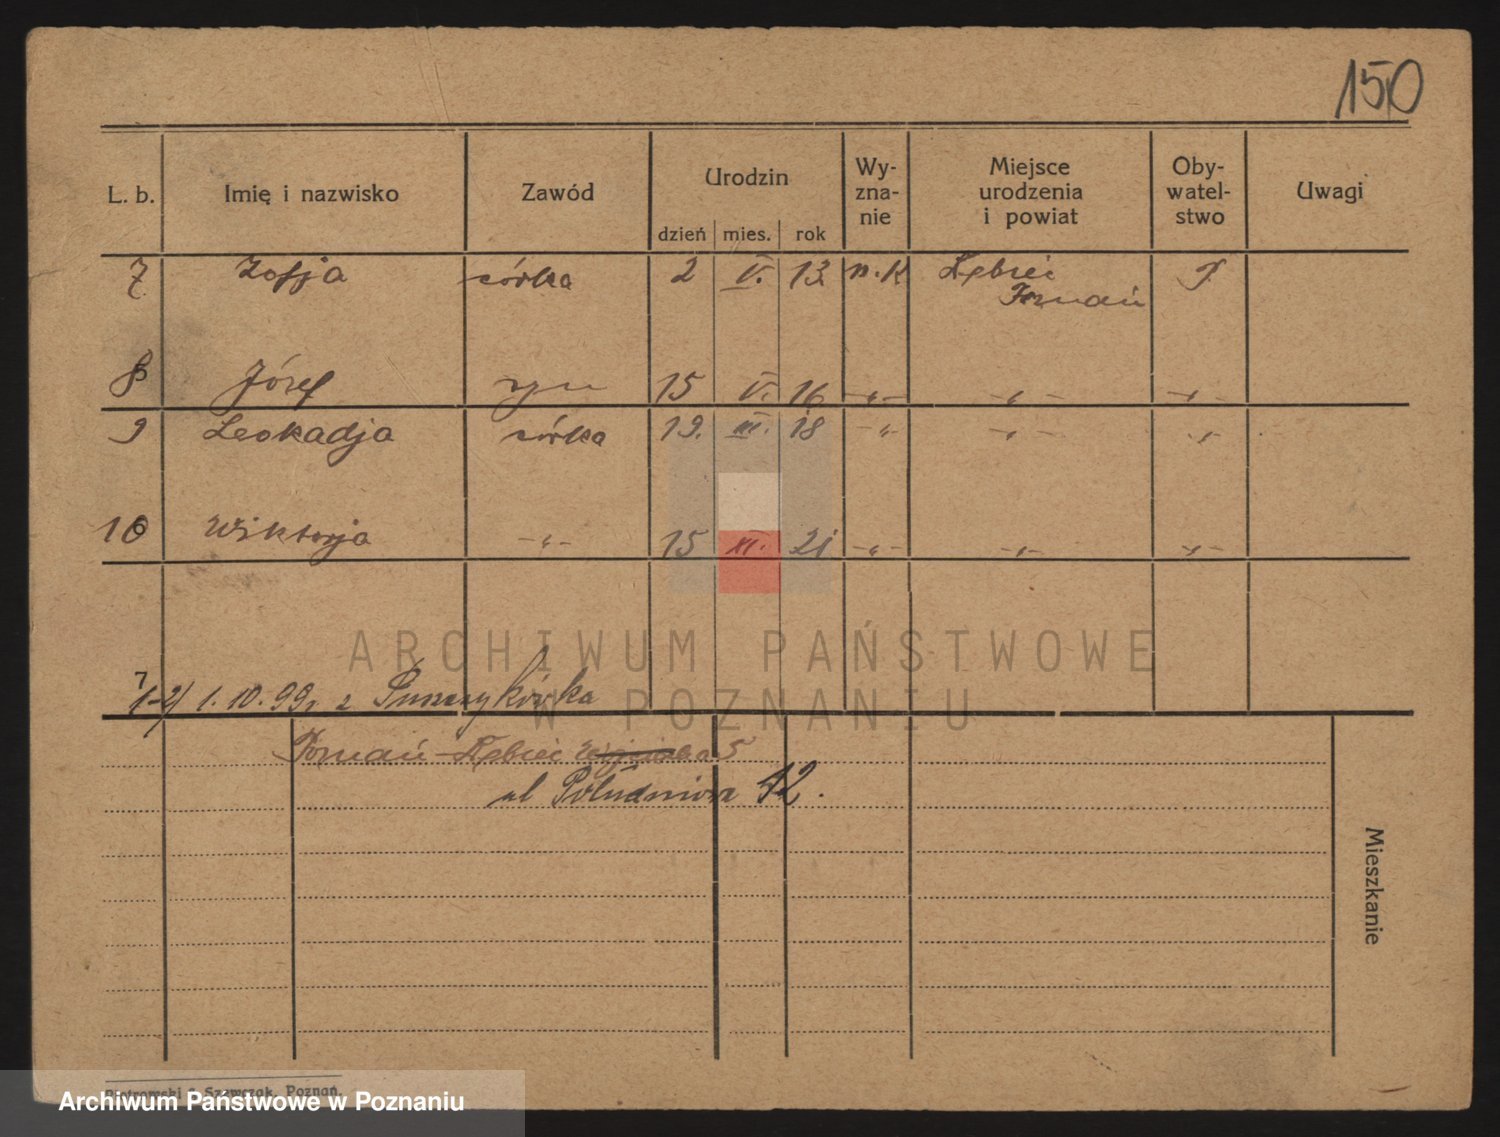 150
L. b. Imię i nazwisko Zawód Urodzin dzień mies. rok Wy-zna-nie Miejsce urodzenia i powiat Oby-watel-stwo Uwagi
7 Zofja córka 2 V. 13 Dębiec
Poznań
8 Józef syn 15 V. 16 -„- -„- -„-
9 Leokadja córka 19. III. 18 -„- -„- -„-
10 Wiktorja -„- 15 XI. 21 -„- -„- -„-
ARCHIWUM PAŃSTWOWE
W POZNANIU
7
1-2) 1.10.99 r z Puszczykówka
Poznań-Dębiec 5
ul Południowa 12.
Mieszkanie
Piotrowski & Szewczak, Poznań.
Archiwum Państwowe w Poznaniu